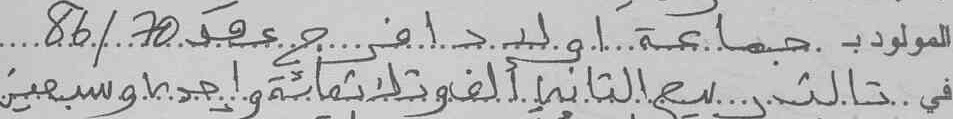 المولود بـ جماعة اولاد دافرج عقد 86/70
في ثالث ربيع الثاني ألف وثلاثمائة واحد وسبعين